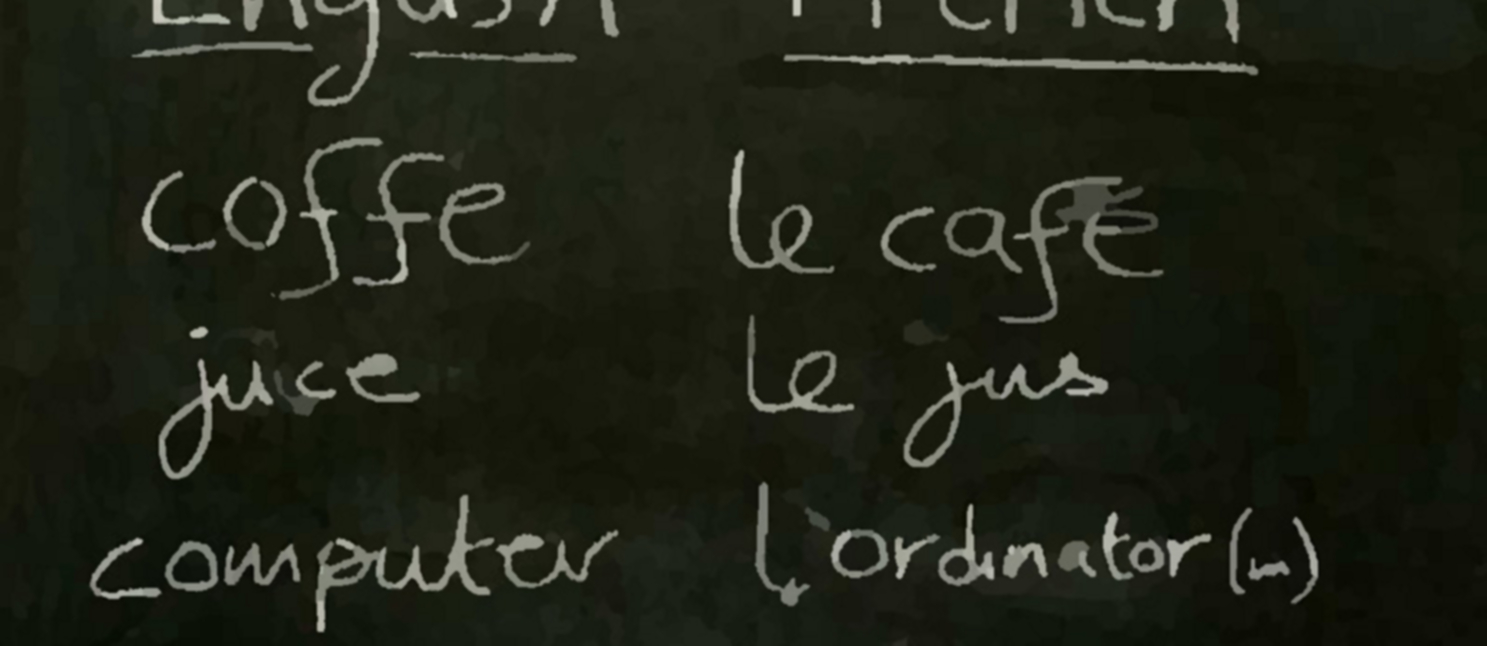 English French
coffe le café
juce le jus
computer l'ordinator (m)